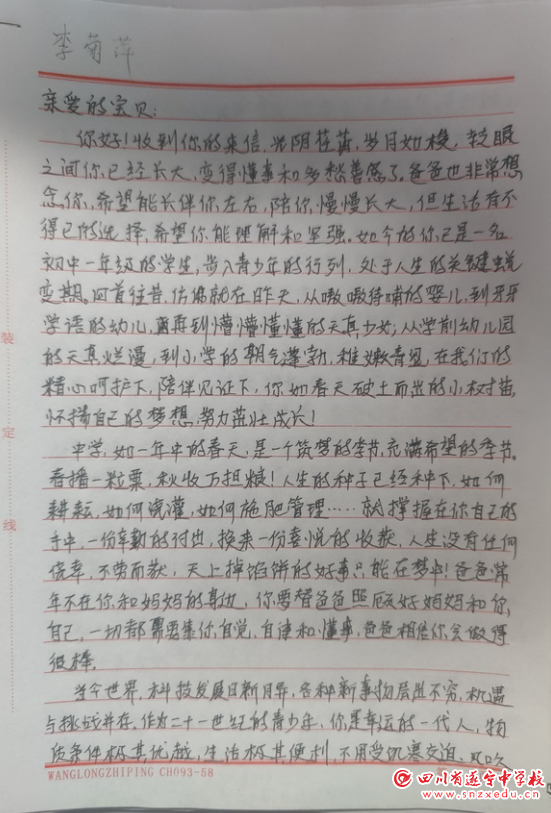 李菊萍
亲爱的宝贝:
你好!收到你的来信,光阴荏苒,岁月如梭,转眼
之间你已经长大,变得懂事和多愁善感了。爸爸也非常想
念你,希望能长伴你左右,陪你慢慢长大,但生活有不
得已的选择,希望你能理解和坚强。如今的你已是一名
初中一年级的学生,步入青少年的行列,处于人生的关键蜕
变期。回首往昔,仿佛就在昨天,从嗷嗷待哺的婴儿,到牙牙
学语的幼儿,再到懵懵懂懂的天真少女;从学前幼儿园
的天真烂漫,到小学的朝气蓬勃,稚嫩青涩,在我们的
精心呵护下,陪伴见证下,你如春天破土而出的小树苗,
怀揣自己的梦想,努力茁壮成长!
中学,如一年中的春天,是一个筑梦的季节,充满希望的季节。
春播一粒粟,秋收万担粮!人生的种子已经种下,如何
耕耘,如何浇灌,如何施肥管理……就掌握在你自己的
手中,一份辛勤的付出,换来一份喜悦的收获,人生没有任何
侥幸,不劳而获,天上掉馅饼的好事只能在梦中!爸爸常
年不在你和妈妈的身边,你要替爸爸照顾好妈妈和你
自己,一切都需要靠你自觉,自律和懂事,爸爸相信你会做得
很棒。
当今世界,科技发展日新月异,各种新事物层出不穷,机遇
与挑战并存。作为二十一世纪的青少年,你是幸运的一代人,物
质条件极其优越,生活极其便利,不用受饥寒交迫,
WANGLONGZHIPING CH093-58
装
定
线
四川省遂宁中学校
www.snzxedu.cn